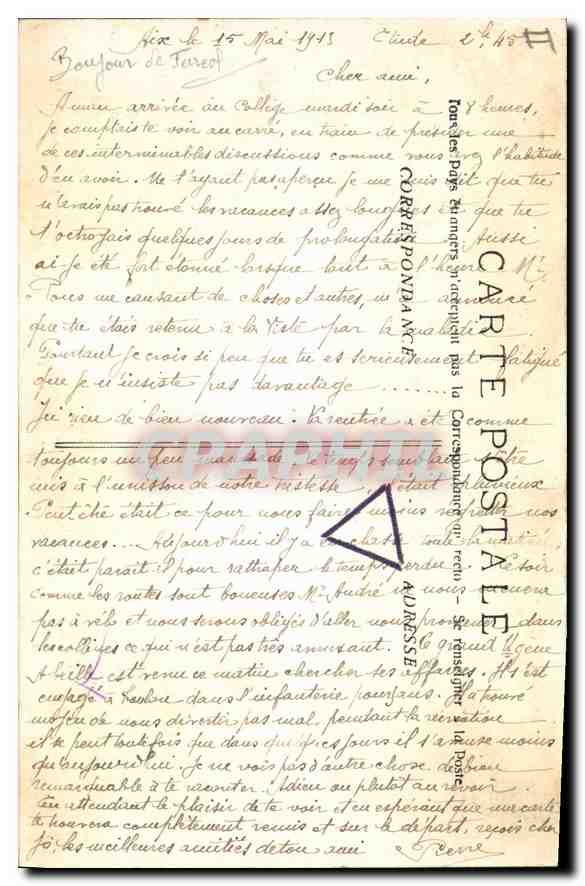 Aix le 15 Mai 1913 Etude 2h 45
Bonjour de
Cher ami,
A mon arrivée au collège mardi soir à 8 heures,
je comptais te voir au carré, en train de présider une
de ces interminables discussions comme vous avez l'habitude
d'en avoir. Ne t'ayant pas aperçu je me suis dit que tu
n'avais pas trouvé les vacances assez longues et que tu
t'octroyais quelques jours de prolongation. Aussi
ai je été fort étonné lorsque tout à l'heure Mr
Pons me causant de choses et autres, m'a annoncé
que tu étais retenu à la Viste par la maladie.
Pourtant je crois si peu que tu es sérieusement fatigué
que je n'insiste pas davantage ........
Ici rien de bien nouveau. La rentrée a été comme
toujours un peu maussade, le temps semblait s'être
mis à l'unisson de notre tristesse, il était pluvieux
Peut être était ce pour nous faire moins regretter nos
vacances... Aujourd'hui il y a eu classe toute la matinée,
c'était parait il pour rattraper le temps perdu. Ce soir
comme les routes sont boueuses Mr André ne nous mènera
pas à vélo et nous serons obligés d'aller nous promener dans
les collines ce qui n'est pas très amusant. Le grand Ugène
Abeille est venu ce matin chercher ses affaires. Il s'est
engagé à Toulon dans l'infanterie pour 3 ans. Il a trouvé
moyen de nous divertir pas mal pendant la récréation
il se peut toutefois que dans quelques jours il s'amuse moins
qu'aujourd'hui. Je ne vois pas d'autre chose de bien
remarquable à te raconter. Adieu ou plutôt au revoir.
En attendant le plaisir de te voir et en espérant que ma carte
te trouvera complètement remis et sur le départ, reçois cher
Jo, les meilleures amitiés de ton ami Pierre
CARTE POSTALE
Tous les Pays étrangers n'acceptent pas la Correspondance au recto - Se renseigner à la Poste
CORRESPONDANCE
ADRESSE
CPAPHIL